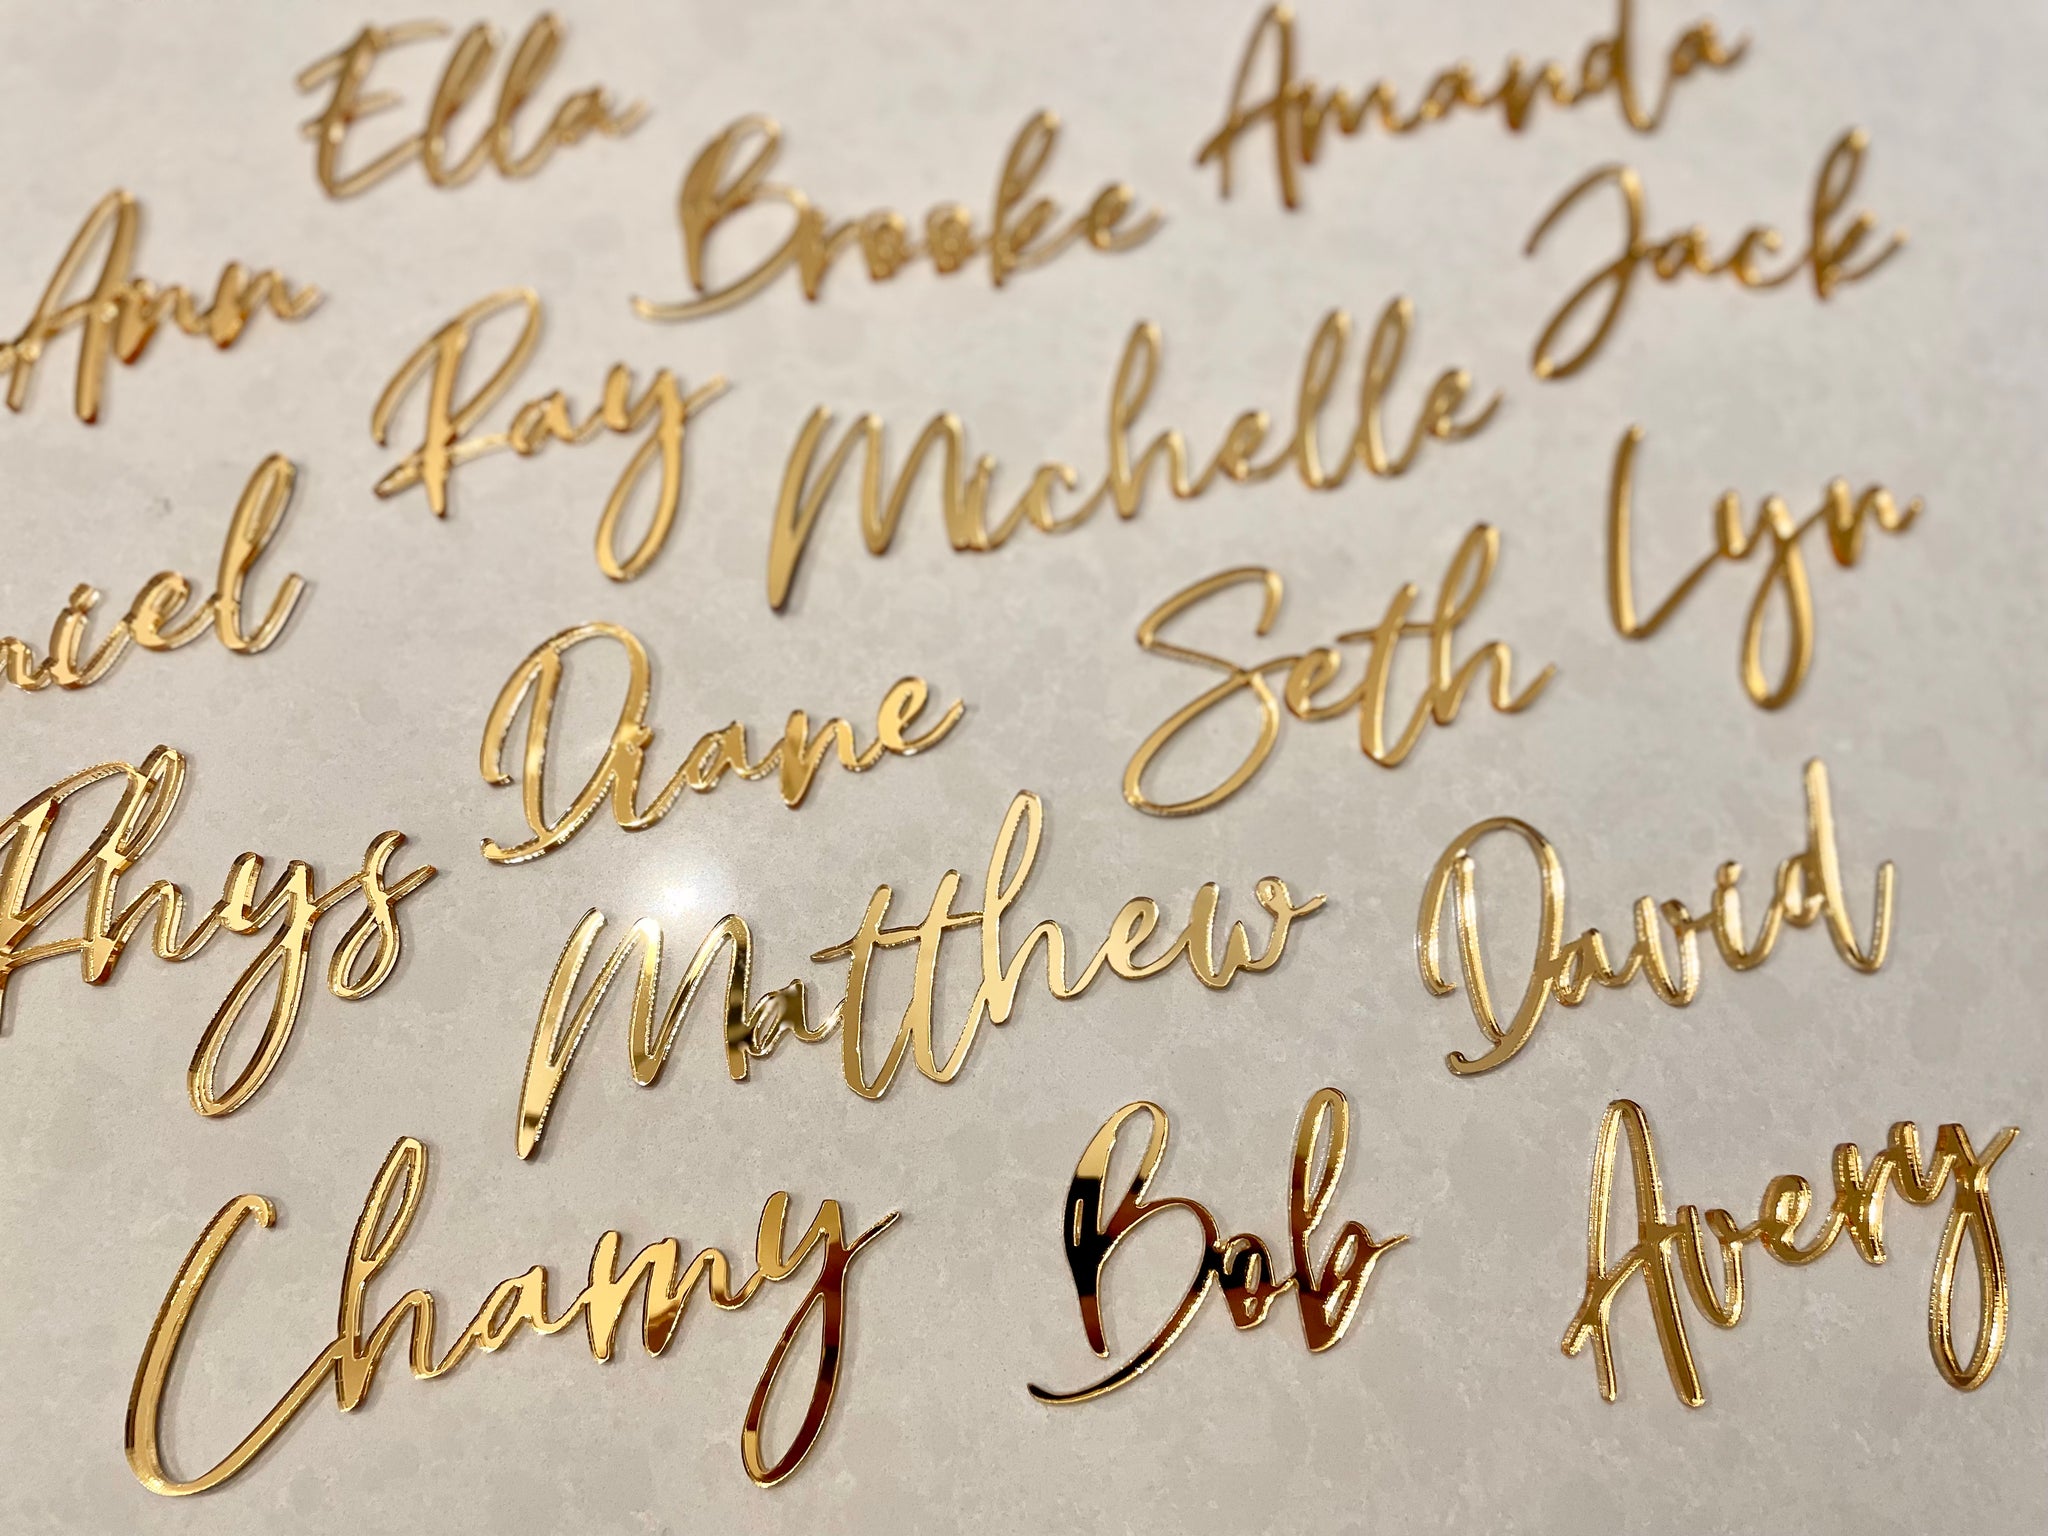 Ella
Amanda
Brooke
Jack
Ann
Ray
Michelle
Lyn
niel
Seth
Diane
Rhys
Matthew
David
Chamy
Bob
Avery